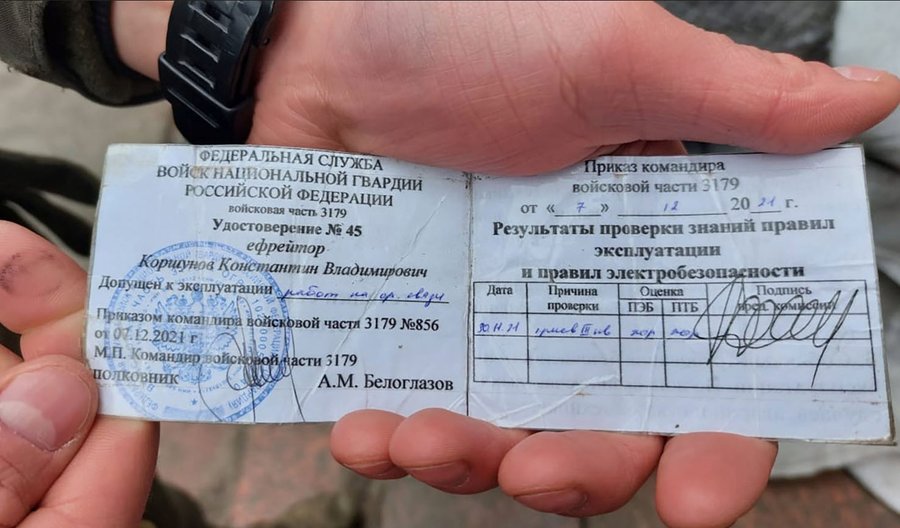 ФЕДЕРАЛЬНАЯ СЛУЖБА
ВОЙСК НАЦИОНАЛЬНОЙ ГВАРДИИ
РОССИЙСКОЙ ФЕДЕРАЦИИ
войсковая часть 3179
Удостоверение № 45
ефрейтор
Коршунов Константин Владимирович
Допущен к эксплуатации работ на ср. связи
Приказом командира войсковой части 3179 №856
от 07.12.2021 г.
М.П. Командир войсковой части 3179
полковник А.М. Белоглазов
Приказ командира
войсковой части 3179
от « 7 » 12 20 21 г.
Результаты проверки знаний правил
эксплуатации
и правил электробезопасности
Дата Причина проверки Оценка ПЭБ ПТБ Подпись пред. комиссии